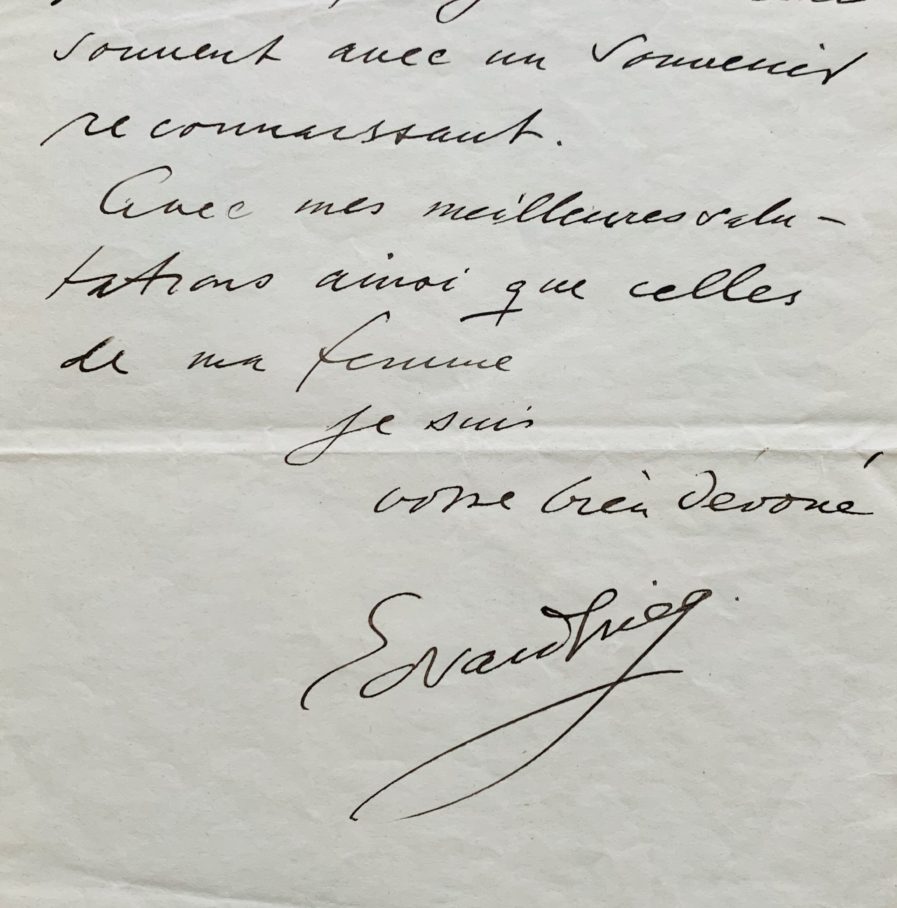 souvent avec un souvenir
reconnaissant.
Avec mes meilleures salu-
tations ainsi que celles
de ma femme
je suis
votre bien dévoué
Edvard Grieg